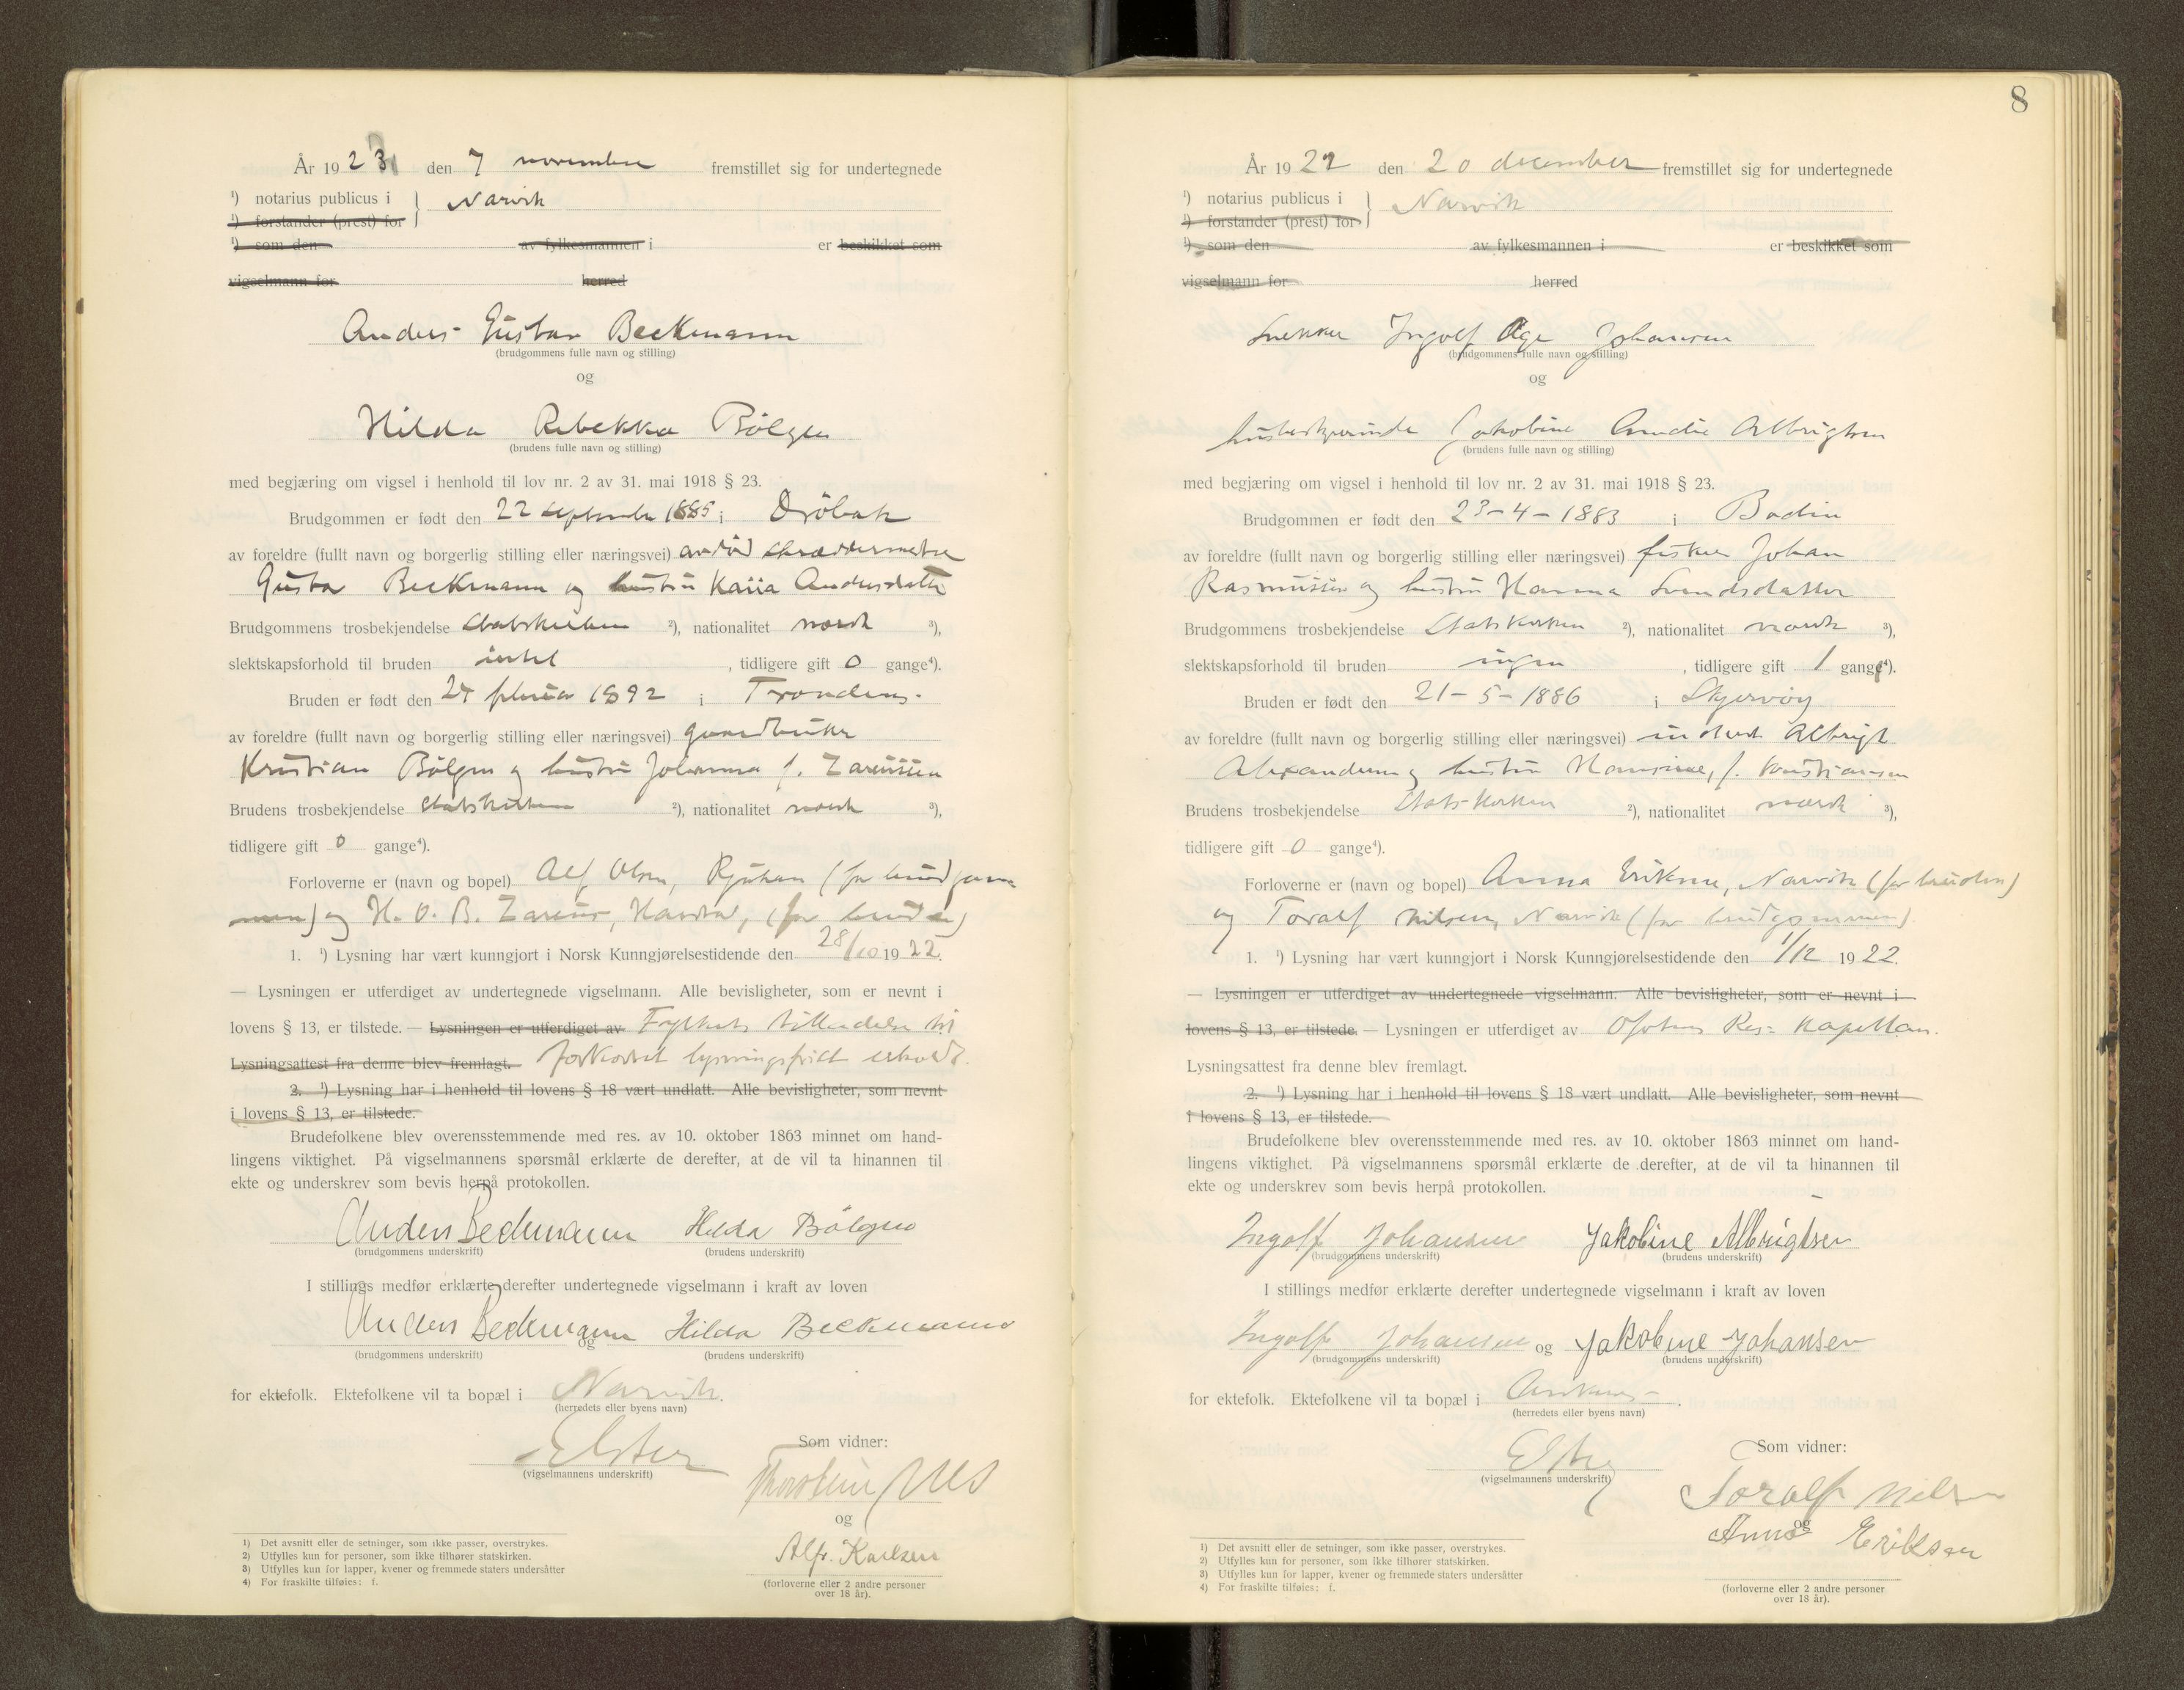 År 1923 den 7 november fremstillet sig for undertegnede
¹) notarius publicus i } Narvik
¹) forstander (prest) for
¹) som den av fylkesmannen i er beskikket som
vigselmann for herred
Anders Gustav Beckmann
(brudgommens fulle navn og stilling)
og
Hilda Rebekka Bölgen
(brudens fulle navn og stilling)
med begjæring om vigsel i henhold til lov nr. 2 av 31. mai 1918 § 23.
Brudgommen er født den 22 september 1885 i Dröbak
av foreldre (fullt navn og borgerlig stilling eller næringsvei) avdöd skræddermester
Gustav Beckmann og hustru Kaiia Andersdatter
Brudgommens trosbekjendelse Statskirken ²), nationalitet norsk ³),
slektskapsforhold til bruden intet , tidligere gift 0 gange⁴).
Bruden er født den februar 1892 i Trondenes
av foreldre (fullt navn og borgerlig stilling eller næringsvei) gaardbruker
Kristian Bölgen og hustru Johanna f. Zariussen
Brudens trosbekjendelse Statskirken ²), nationalitet norsk ³),
tidligere gift 0 gange⁴).
Forloverne er (navn og bopel) Alf Olsen, Rjukan (for brudgom
men) og H. O. B. Zarius, Harstad, (for bruden)
1. ¹) Lysning har vært kunngjort i Norsk Kunngjørelsestidende den 28/10 1922.
— Lysningen er utferdiget av undertegnede vigselmann. Alle bevisligheter, som er nevnt i
lovens § 13, er tilstede. — Lysningen er utferdiget av Fylkets tilladelse til
Lysningsattest fra denne blev fremlagt. forkortet lysningsfrist erholdt.
2. ¹) Lysning har i henhold til lovens § 18 vært undlatt. Alle bevisligheter, som nevnt
i lovens § 13, er tilstede.
Brudefolkene blev overensstemmende med res. av 10. oktober 1863 minnet om hand-
lingens viktighet. På vigselmannens spørsmål erklærte de derefter, at de vil ta hinannen til
ekte og underskrev som bevis herpå protokollen.
Anders Beckmann Hilda Bölgen
(brudgommens underskrift) (brudens underskrift)
I stillings medfør erklærte derefter undertegnede vigselmann i kraft av loven
Anders Beckmann og Hilda Beckmann
(brudgommens underskrift) (brudens underskrift)
for ektefolk. Ektefolkene vil ta bopæl i Narvik.
(herredets eller byens navn)
Elster
(vigselmannens underskrift)
Som vidner:
og
Alfr. Karlsen
(forloverne eller 2 andre personer
over 18 år).
1) Det avsnitt eller de setninger, som ikke passer, overstrykes.
2) Utfylles kun for personer, som ikke tilhører statskirken.
3) Utfylles kun for lapper, kvener og fremmede staters undersåtter
4) For fraskilte tilføies: f.
8
År 1922 den 20 december fremstillet sig for undertegnede
¹) notarius publicus i } Narvik
¹) forstander (prest) for
¹) som den av fylkesmannen i er beskikket som
vigselmann for herred
Snekker Ingolf Åge Johansen
(brudgommens fulle navn og stilling)
og
husbestyrerinde Jakobine Albrigtsen
(brudens fulle navn og stilling)
med begjæring om vigsel i henhold til lov nr. 2 av 31. mai 1918 § 23.
Brudgommen er født den 23-4-1883 i Bodin
av foreldre (fullt navn og borgerlig stilling eller næringsvei) fisker Johan
Rasmussen og hustru Hanna Svendsdatter
Brudgommens trosbekjendelse Statskirken ²), nationalitet norsk ³),
slektskapsforhold til bruden ingen , tidligere gift 1 gang⁴).
Bruden er født den 21-5-1886 i Skjervöy
av foreldre (fullt navn og borgerlig stilling eller næringsvei) inderst Albrigt
Alexandersen og hustru Hansine, f. Kristiansen
Brudens trosbekjendelse Statskirken ²), nationalitet norsk ³),
tidligere gift 0 gange⁴).
Forloverne er (navn og bopel) Anna Eriksen, Narvik (for bruden)
og Toralf Nilsen, Narvik (for brudgommen).
1. ¹) Lysning har vært kunngjort i Norsk Kunngjørelsestidende den 1/12 1922.
— Lysningen er utferdiget av undertegnede vigselmann. Alle bevisligheter, som er nevnt i
lovens § 13, er tilstede. — Lysningen er utferdiget av Ofotens Res: Kapellan.
Lysningsattest fra denne blev fremlagt.
2. ¹) Lysning har i henhold til lovens § 18 vært undlatt. Alle bevisligheter, som nevnt
i lovens § 13, er tilstede.
Brudefolkene blev overensstemmende med res. av 10. oktober 1863 minnet om hand-
lingens viktighet. På vigselmannens spørsmål erklærte de derefter, at de vil ta hinannen til
ekte og underskrev som bevis herpå protokollen.
Ingolf Johansen Jakobine Albrigtsen
(brudgommens underskrift) (brudens underskrift)
I stillings medfør erklærte derefter undertegnede vigselmann i kraft av loven
Ingolf Johansen og Jakobine Johansen
(brudgommens underskrift) (brudens underskrift)
for ektefolk. Ektefolkene vil ta bopæl i Ankenes.
(herredets eller byens navn)
Elster
(vigselmannens underskrift)
Som vidner:
Toralf Nilsen
og
Anna Eriksen
(forloverne eller 2 andre personer
over 18 år).
1) Det avsnitt eller de setninger, som ikke passer, overstrykes.
2) Utfylles kun for personer, som ikke tilhører statskirken.
3) Utfylles kun for lapper, kvener og fremmede staters undersåtter
4) For fraskilte tilføies: f.